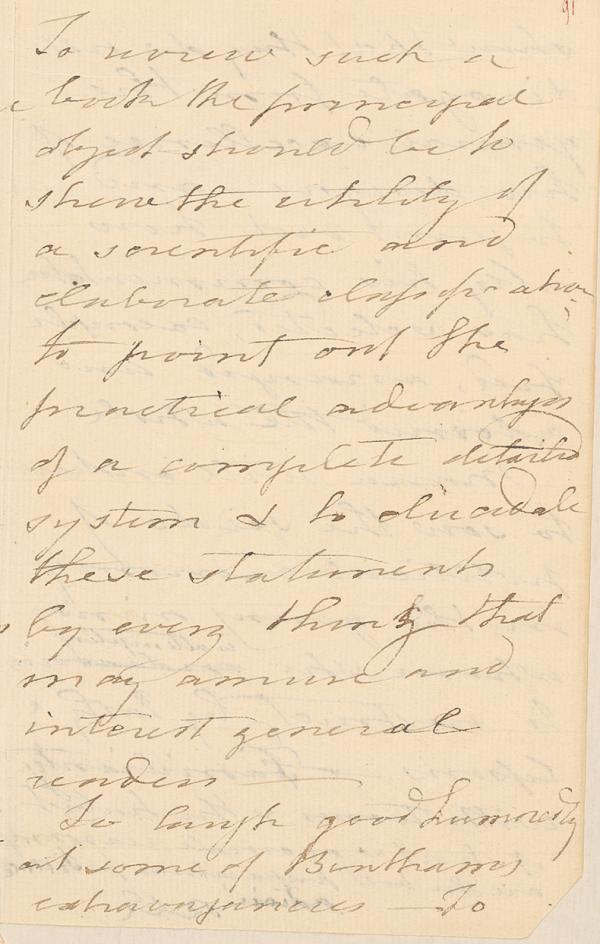 91
To review such a
book the principal
object should be to
shew the utility of
a scientific and
elaborate classification,
to point out the
practical advantages
of a complete detailed
system & to elucidate
these statements
by every thing that
may amuse and
interest general
readers —
To laugh good humoredly
at some of Benthams
extravagances — To